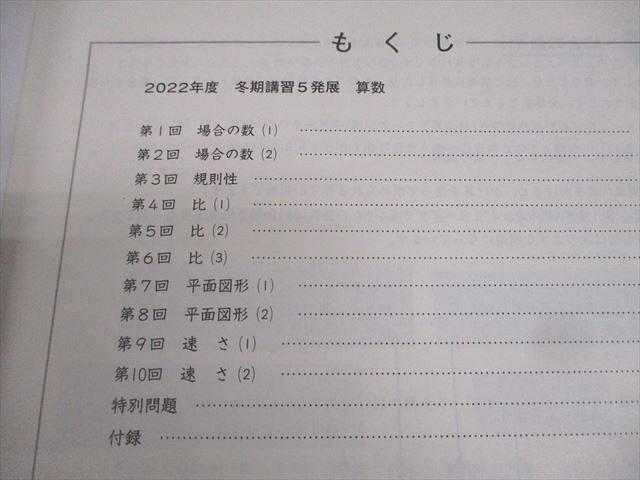 もくじ
2022年度 冬期講習5発展 算数
第1回 場合の数(1) ……………………
第2回 場合の数(2) ……………………
第3回 規則性 ……………………
第4回 比(1) ……………………
第5回 比(2) ……………………
第6回 比(3) ……………………
第7回 平面図形(1) ……………………
第8回 平面図形(2) ……………………
第9回 速 さ(1) ……………………
第10回 速 さ(2) ……………………
特別問題 ……………………
付録 ……………………